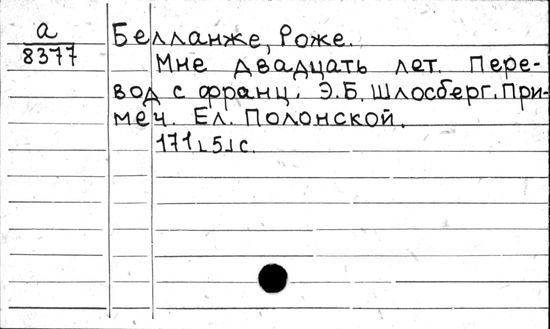 а
8377
Белланже, Роже.
Мне двадцать лет. Пере-
вод с франц. Э.Б. Шлосберг. При-
меч. Ел. Полонской.
171 ∟5⅃ с.